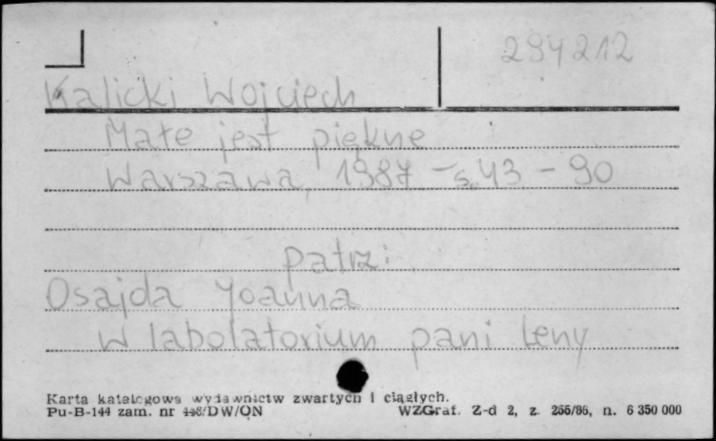 294212
Kalicki Wojciech
Małe jest piękne
Warszawa, 1987 - s. 43 - 90
patrz:
Osajda Joanna
W labolatorium pani Leny
Karta katalogowa wydawnictw zwartych i ciągłych.
Pu-B-144 zam. nr /DW/ON WZGraf. Z-d 2, z. 266/86, n. 6 350 000